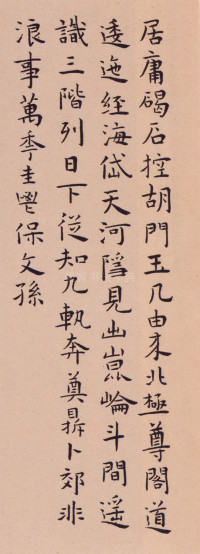 居庸碣石控胡門玉几由来北極尊閣道
逶迤經海岱天河隱見出崑崘斗間遥
識三階列日下從知九軌奔奠鼎卜郊非
浪事萬秊圭鬯保文孫